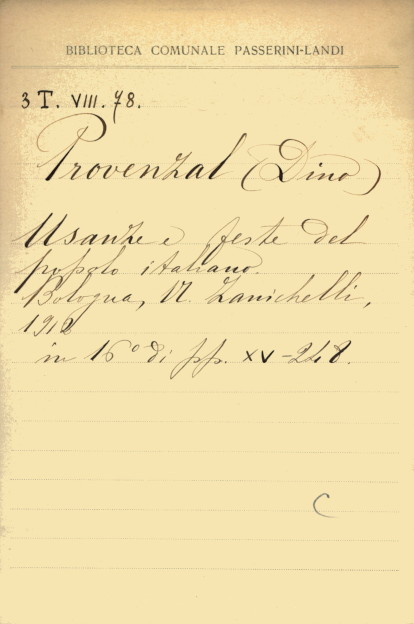 BIBLIOTECA COMUNALE PASSERINI-LANDI
3 T. VIII. 78.
Provenzal (Dino)
Usanze e feste del
popolo italiano.
Bologna, N. Zanichelli,
1912
in 16° di pp. XV-248.
C